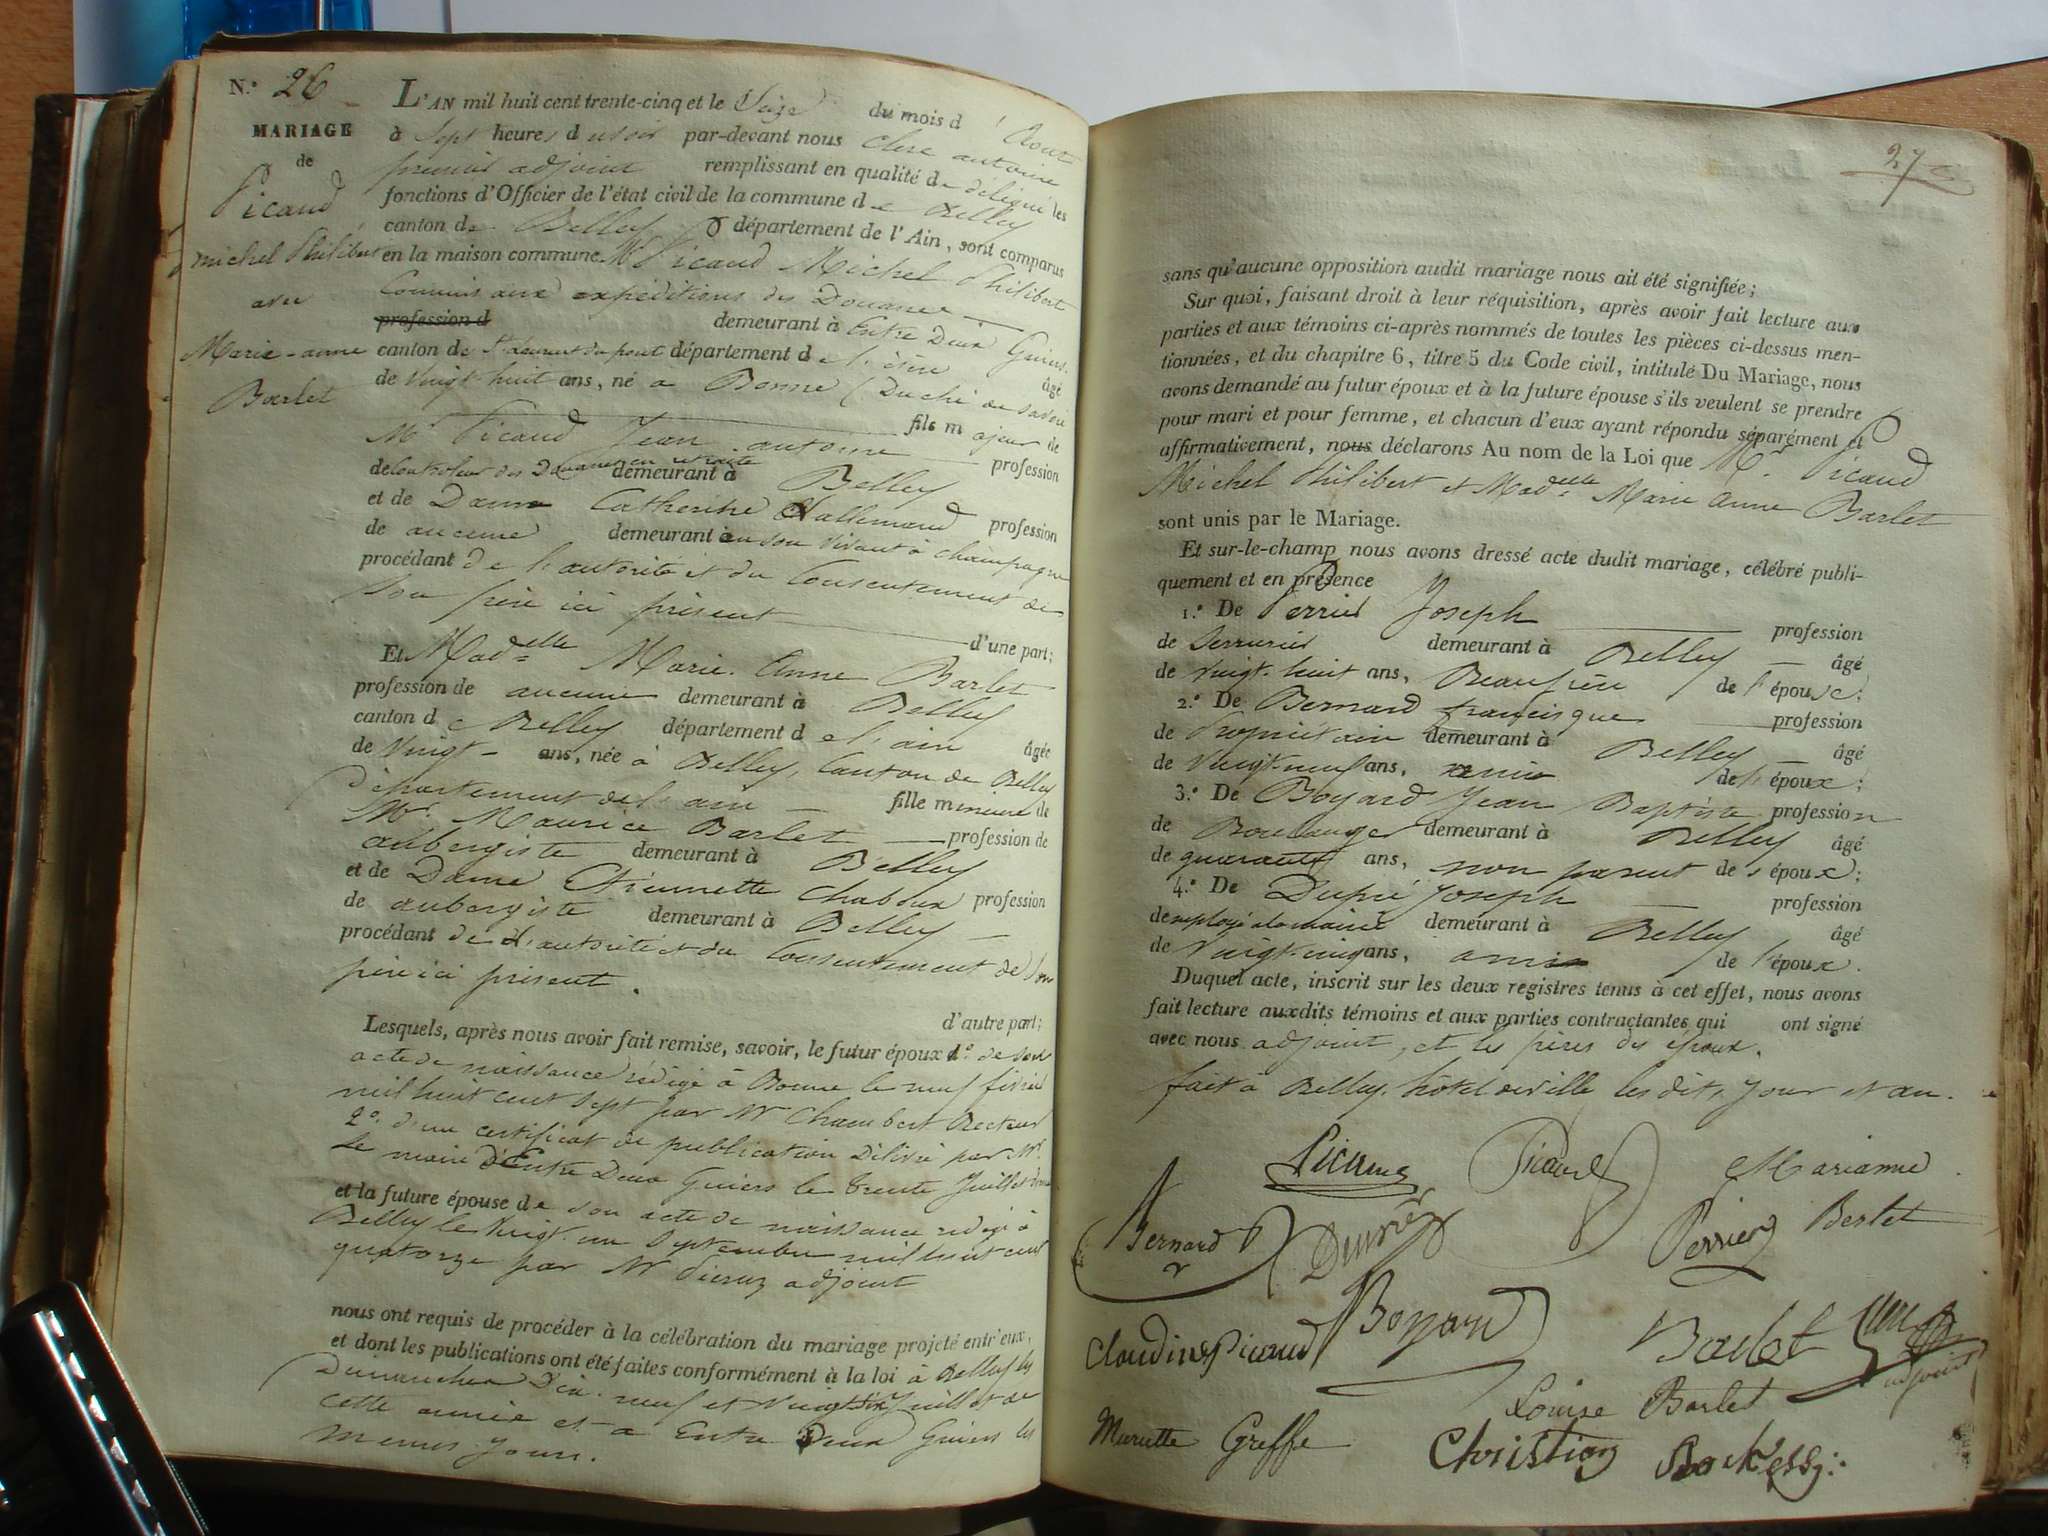 N.º 26
MARIAGE
de
Picaud
Michel Philibert
avec
Marie-anne
Barlet
L'AN mil huit cent trente-cinq et le Seize du mois d'Aout
à Sept heures du soir par-devant nous Clerc antoine
premier adjoint remplissant en qualité de délégué les
fonctions d'Officier de l'état civil de la commune de Belley
canton de Belley département de l'Ain, sont comparus
en la maison commune Mr Picaud Michel Philibert
Commis aux expéditions des Douanes
profession d demeurant à Entre Deux Guiers
canton de St Laurent du pont département de l'isère âgé
de Vingt-huit ans, né à Bonne (Duché de Savoie
fils majeur de
Mr Picaud Jean antoine profession
de Controleur des Douanes en retraite demeurant à Belley
et de Dame Catherine Lallemand profession
de aucune demeurant en son vivant à Champagne
procédant de l'autorité et du Consentement de
Son père ici présent
d'une part;
Et Madelle Marie-Anne Barlet
profession de aucune demeurant à Belley
canton de Belley département de l'ain âgée
de Vingt ans, née à Belley, Canton de Belley
département de l'ain fille mineure de
Mr Maurice Barlet profession de
aubergiste demeurant à Belley
et de Dame Etiennette Chaboux profession
de aubergiste demeurant à Belley
procédant de l'autorité et du Consentement de Son
père ici présent.
d'autre part;
Lesquels, après nous avoir fait remise, savoir, le futur époux 1º de son
acte de naissance rédigé à Bonne le neuf février
mil huit cent Sept par Mr Chambert Recteur
2º d'un certificat de publication Délivré par Mr
Le maire d'Entre Deux Guiers le trente Juillet
et la future épouse de son acte de naissance redigé à
Belley le Vingt un Septembre mil huit cent
quatorze par Mr adjoint
nous ont requis de procéder à la célébration du mariage projeté entr'eux,
et dont les publications ont été faites conformément à la loi à Belley les
Dimanches Dix-neuf et Vingt Six Juillet de
cette année et à Entre Deux Guiers les
memes Jours.
27
sans qu'aucune opposition audit mariage nous ait été signifiée;
Sur quoi, faisant droit à leur réquisition, après avoir fait lecture aux
parties et aux témoins ci-après nommés de toutes les pièces ci-dessus men-
tionnées, et du chapitre 6, titre 5 du Code civil, intitulé Du Mariage, nous
avons demandé au futur époux et à la future épouse s'ils veulent se prendre
pour mari et pour femme, et chacun d'eux ayant répondu séparément et
affirmativement, nous déclarons Au nom de la Loi que Mr Picaud
Michel Philibert et Madelle Marie Anne Barlet
sont unis par le Mariage.
Et sur-le-champ nous avons dressé acte dudit mariage, célébré publi-
quement et en présence
1.º De Perrier Joseph profession
de Serrurier demeurant à Belley âgé
de Vingt-huit ans, Beaufrère de l'épouse;
2.º De Bernard francisque profession
de Propriétaire demeurant à Belley âgé
de Vingt-neuf ans, ami de l'époux;
3.º De Boyard Jean Baptiste profession
de Boulanger demeurant à Belley âgé
de quarante ans, non parent de l'époux;
4.º De Dupré Joseph profession
de employé a la mairie demeurant à Belley âgé
de Vingt-cinq ans, ami de l'époux.
Duquel acte, inscrit sur les deux registres tenus à cet effet, nous avons
fait lecture auxdits témoins et aux parties contractantes qui ont signé
avec nous adjoint, et les pères des époux.
fait à Belley, hôtel de ville les dits, jour et an.
Picaud Picaud Marianne
Bernard Dupré Perrier Berlet
Claudine Picaud Boyard Barlet Clerc
adjoint
Louise Barlet
Mariette Greffe Christian